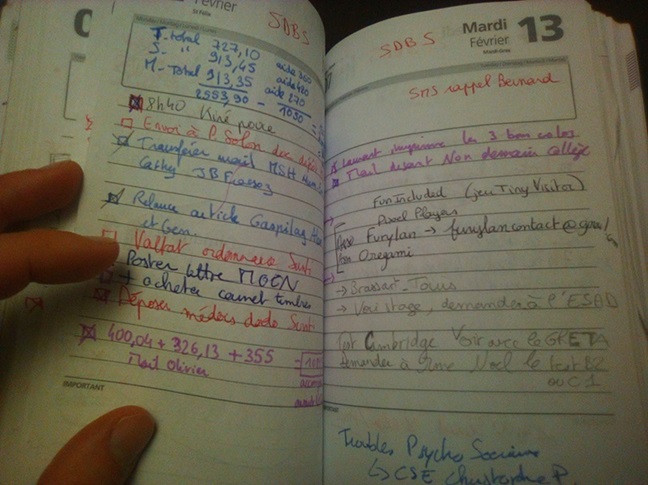 Février
SDBS
T-total 727,10 aide 360
S- " 913,45 aide 420
M-Total 913,35 aide 270
2553,90 - 1050 =
8h40 Kiné poire
Envoi à P. Solon doc
Transférer mail MSH
Cathy JB
Relance article Gaspilag
et Gem.
Valfat ordonnance
Poster lettre MOON
+ acheter carnet timbres
Déposer médocs dodo
400,04 + 326,13 + 355
Mail Olivier
IMPORTANT
SDBS
Mardi 13
Février
SMS rappel Bernard
Laurent imprime les 3 bon colos
Mail disant Non demain collège
Fun Included (jeu Tiny Visitor)
Pixel Players
Furylan → furylancontact@gmail
Oregami
→ Brassart-Tours
→ Voir stage, demander à l'ESAD
Test Cambridge Voir avec le GRETA
demander à Mme Noel le test B2
ou C1
Troubles Psycho Sociaux
↳ CSE Christophe P.